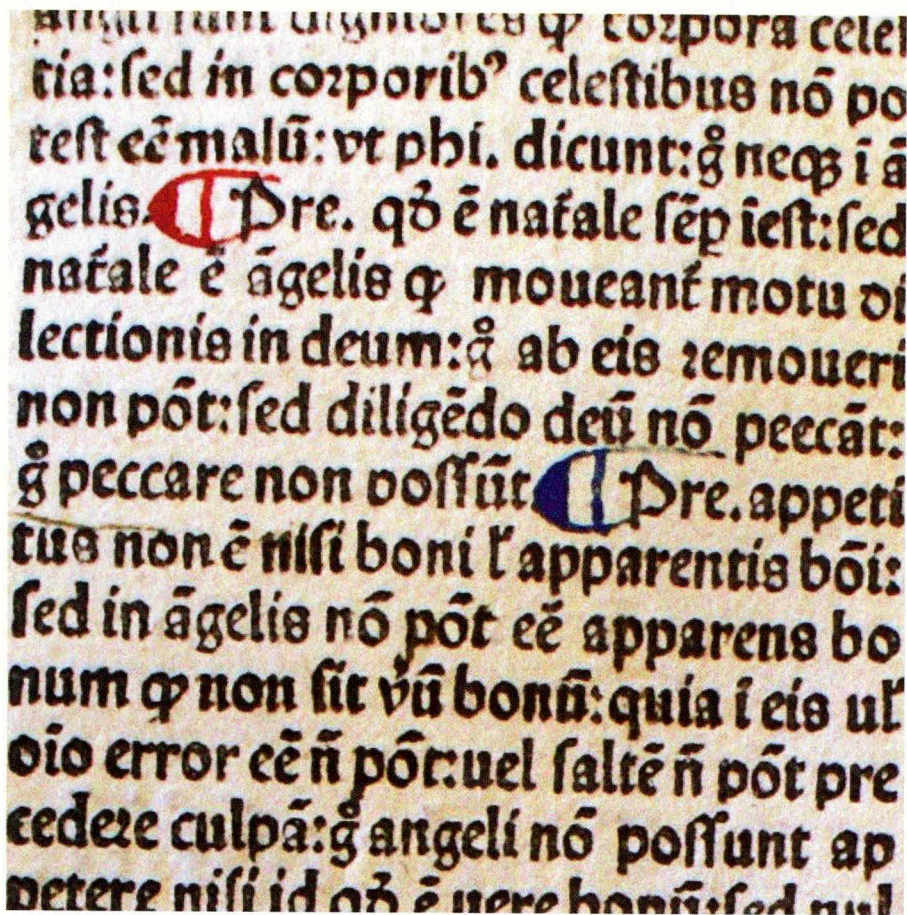 angeli sunt digniores ꝙ coꝛpora celeſ
tia:ſed in coꝛporibꝰ celeſtibus nō po
teſt eē malū: vt phi. dicunt:g̊ neqꝫ ī ā
gelis. ¶ Pre. qð ē nat̄ale ſēꝑ īeſt:ſed
nat̄ale ē āgelis ꝙ moueant̄ motu di
lectionis in deum:g̊ ab eis ꝛemoueri
non pōt:ſed diligēdo deū nō peccāt:
g̊ peccare non poſſūt ¶ Pre. appeti
tus non ē niſi boni ł apparentis bōi:
ſed in āgelis nō pōt eē apparens bo
num ꝙ non ſit v̊ū bonū:quia ī eis ul̄
oīo error eē n̄ pōt:uel ſaltē n̄ pōt pre
cedeꝛe culpā:g̊ angeli nō poſſunt ap
petere niſi id qð ē uere bonū:ſed nul